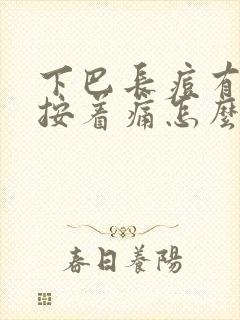 下巴長痘有
按著痛怎麼
春日養陽